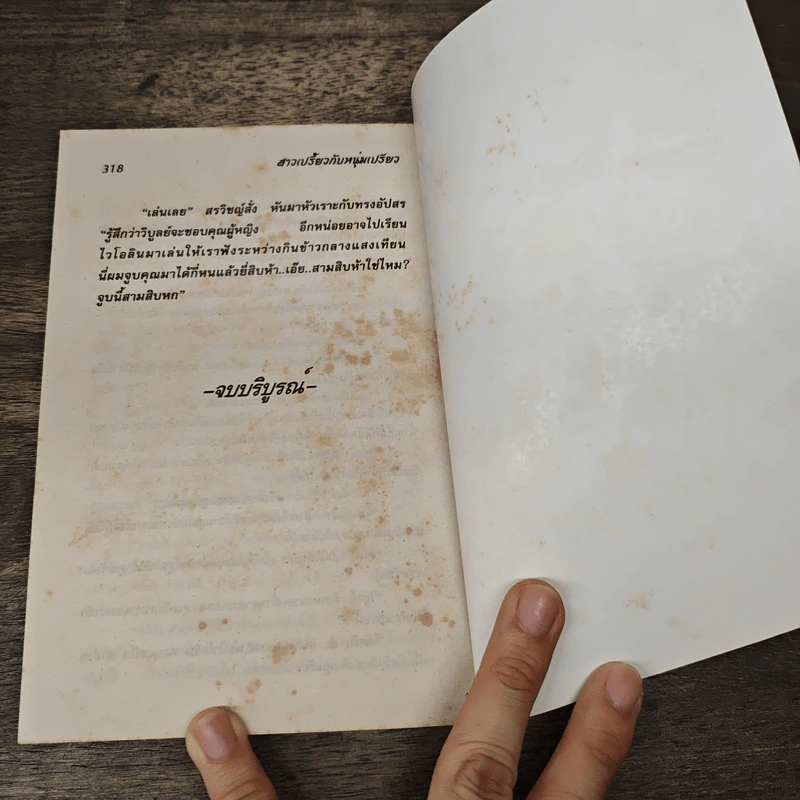 318
สาวเปรี้ยวกับหนุ่มเปรียว
"เล่นเลย" สรวิชญ์สั่ง หันมาหัวเราะกับทรงอัปสร
"รู้สึกว่าวิบูลย์จะชอบคุณผู้หญิง อีกหน่อยอาจไปเรียน
ไวโอลินมาเล่นให้เราฟังระหว่างกินข้าวกลางแสงเทียน
นี่ผมจูบคุณมาได้กี่หนแล้วยี่สิบห้า..เอ๊ย..สามสิบห้าใช่ไหม?
จูบนี้สามสิบหก"
–จบบริบูรณ์–